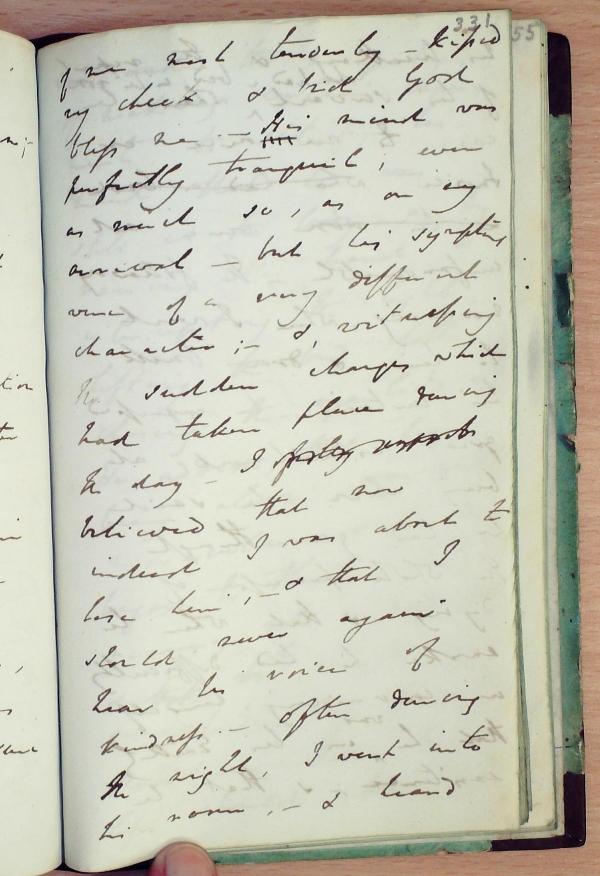 331
55
of me most tenderly – kissed
my cheek & bid God
bless me. – His mind was
perfectly tranquil; even
as much so, as on my
arrival – but his symptoms
were of a very different
character; – &, witnessing
the sudden changes which
had taken place during
the day – I
believed that now
indeed I was about to
lose him; – & that I
should never again
hear his voice of
kindness. – often during
the night, I went into
his room, – & heard